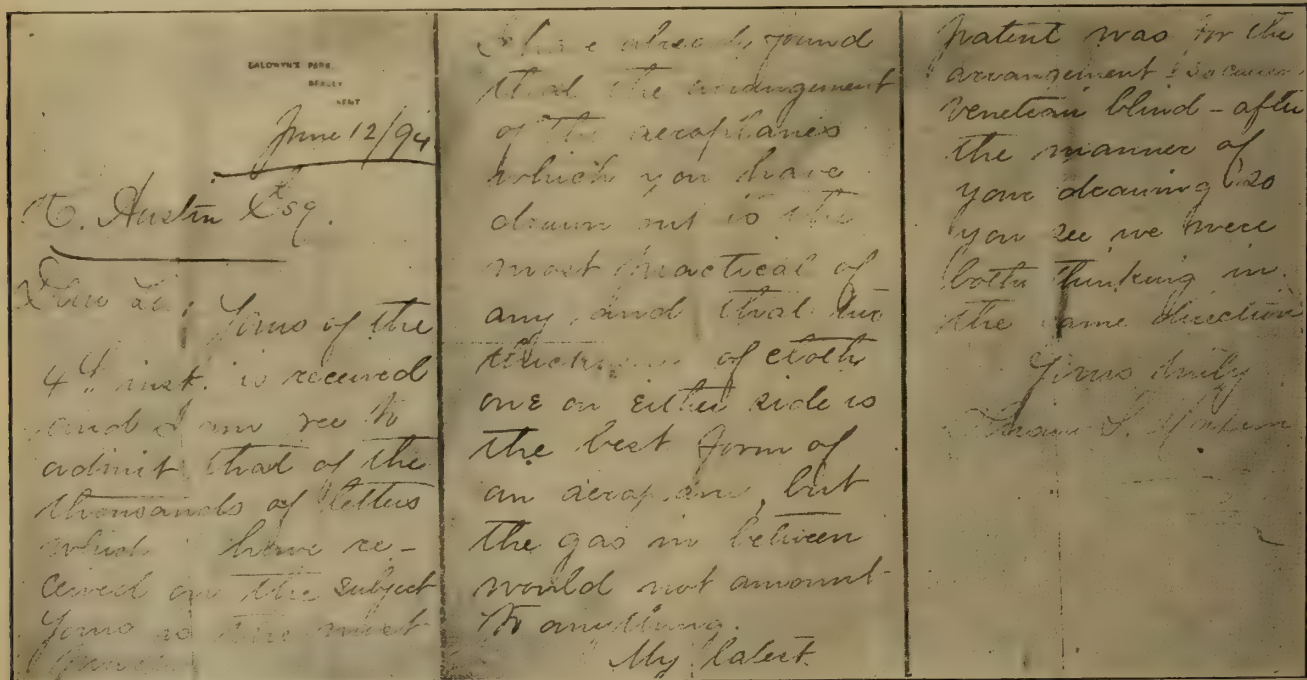 BALDWYN'S PARK,
BEXLEY
KENT
June 12/94
Austin Esq.
Dear Sir; Yours of the
4th inst. is received
and I am free to
admit that of the
thousands of letters
which I have re-
ceived on the subject
Yours is the most
I have already found
that the arrangement
of the aeroplanes
which you have
drawn out is the
most practical of
any and that two
thickness of cloth
one on either side is
the best form of
an aeroplane, but
the gas in between
would not amount
to anything.
My latest
patent was for the
arrangement so called
venetian blind - after
the manner of
your drawing so
you see we were
both thinking in
the same direction
Yours truly
Hiram S. Maxim